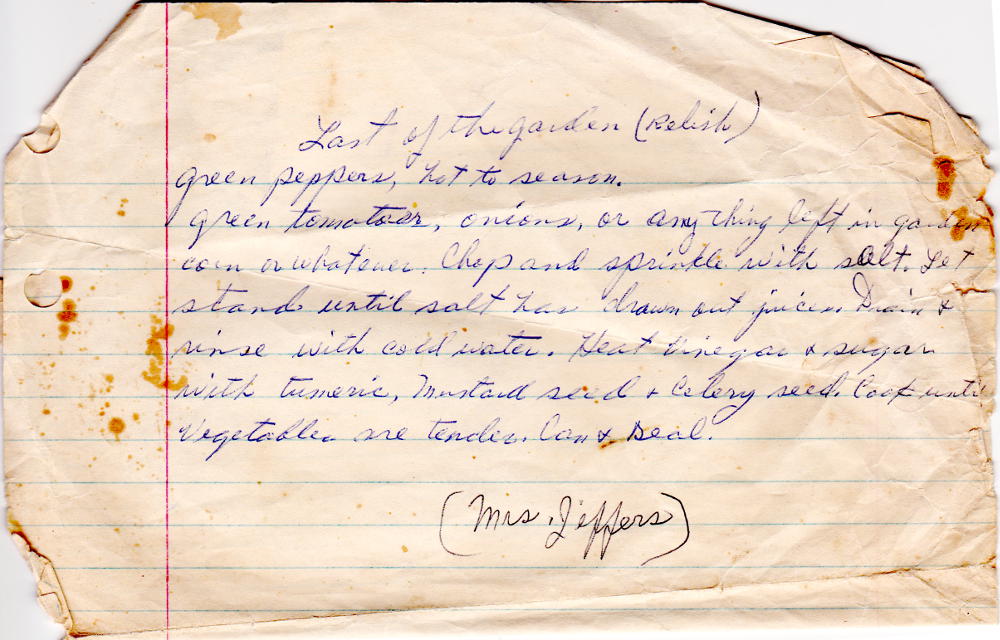 Last of the garden (Relish)
green peppers, hot to season.
green tomatoes, onions, or any thing left in garden
corn or whatever. Chop and sprinkle with salt. Let
stand until salt has drawn out juices. Drain &
rinse with cold water. Heat Vinegar & sugar
with tumeric, Mustard seed & Celery seed. Cook until
Vegetables are tender. Can & Seal.
(Mrs. Jeffers)